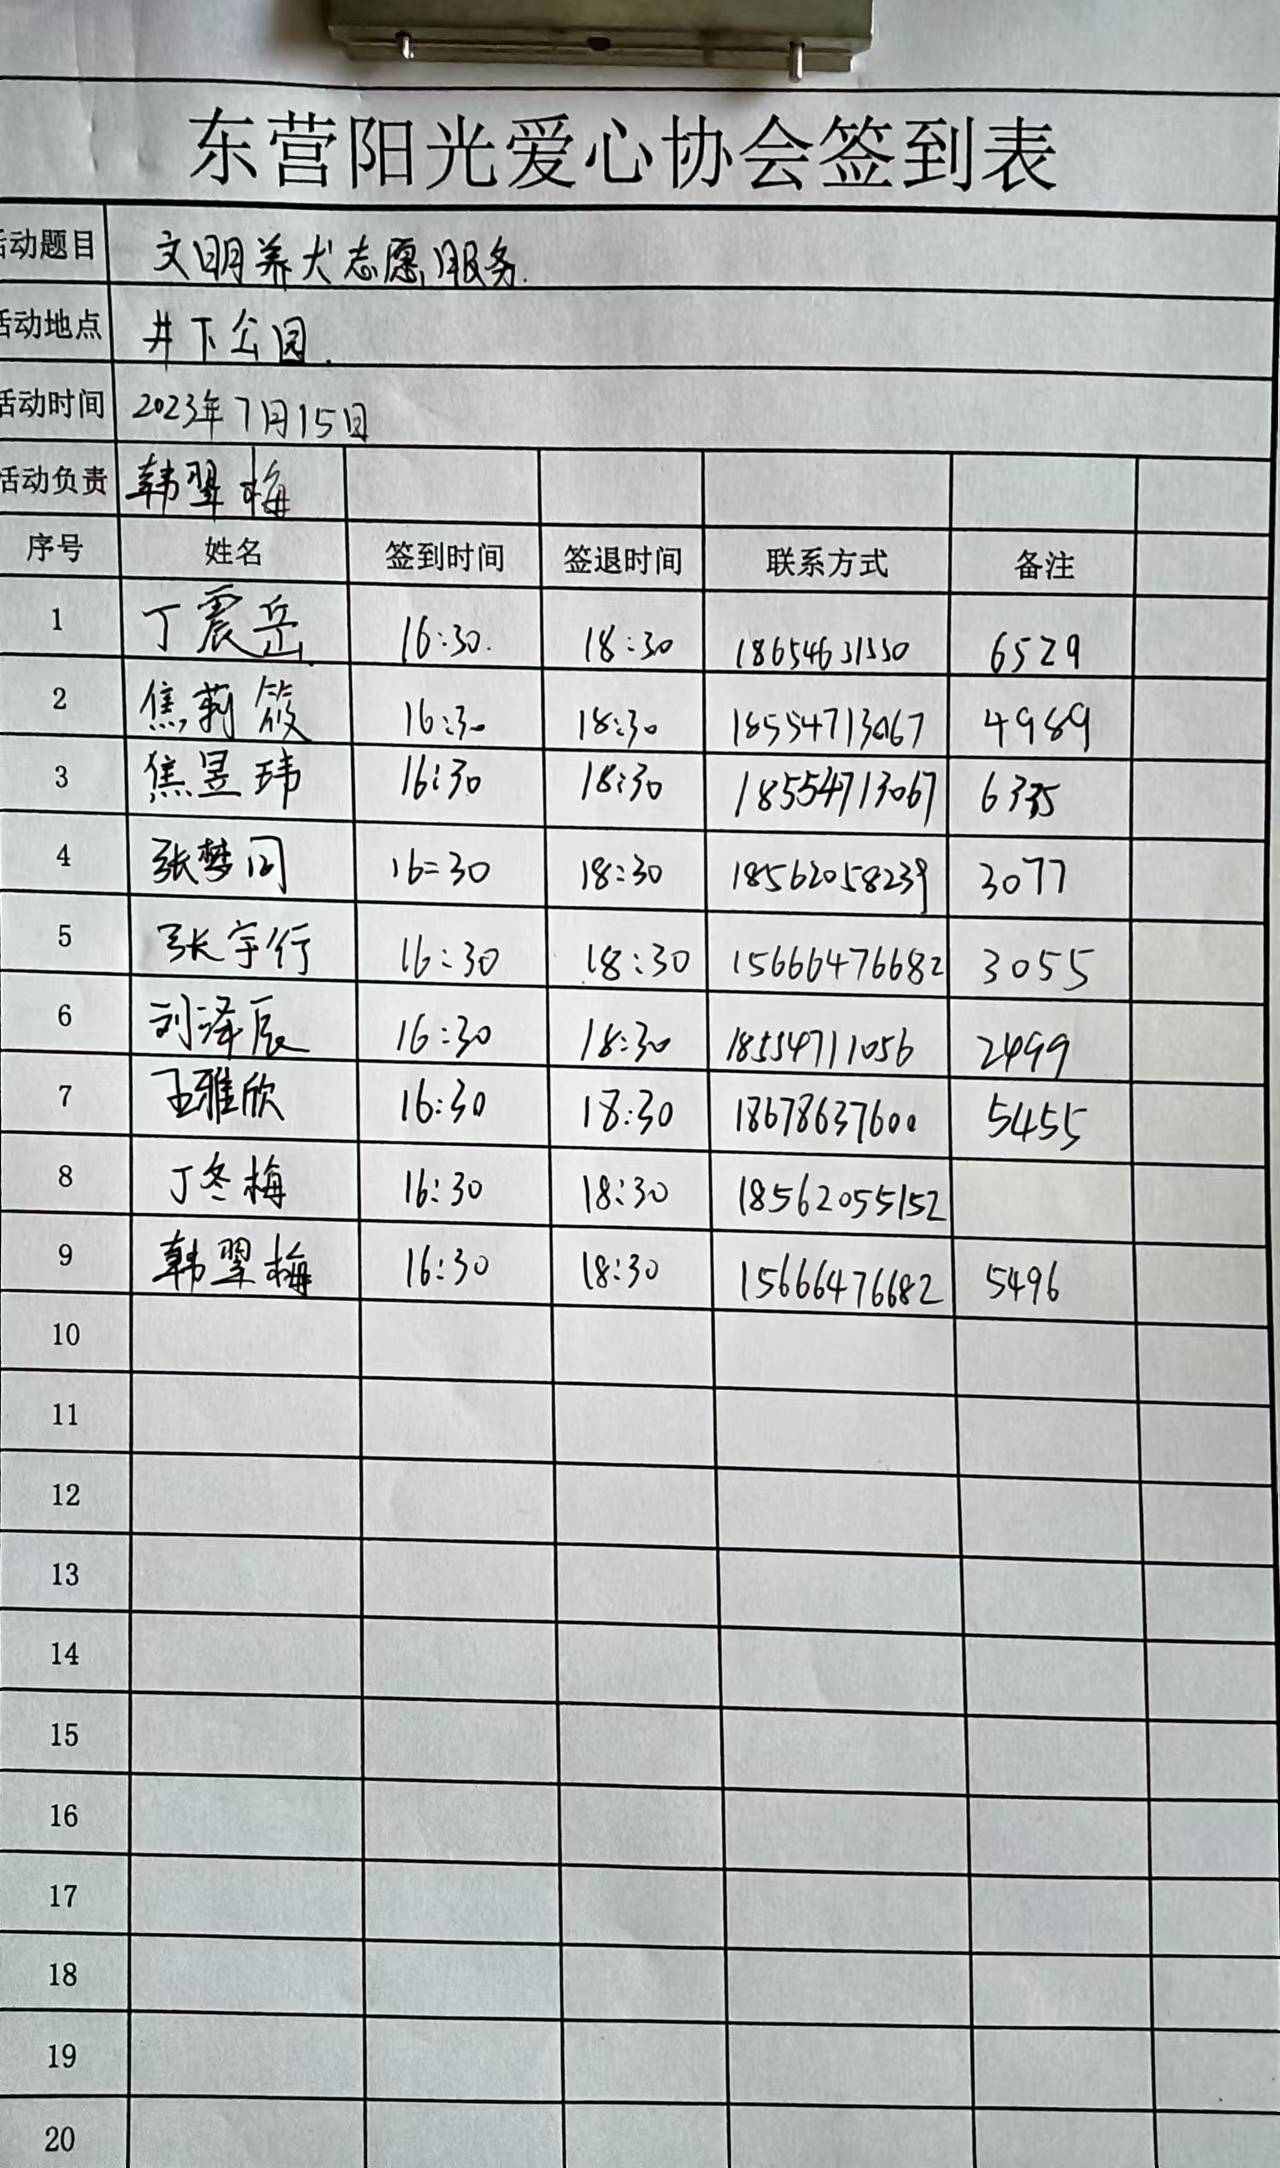 东营阳光爱心协会签到表
活动题目 文明养犬志愿服务.
活动地点 井下公园.
活动时间 2023年7月15日
活动负责 韩翠梅
序号 姓名 签到时间 签退时间 联系方式 备注
1 丁震岳 16:30. 18:30 6529
2 焦莉筱 16:30 18:30 18554713067 4989
3 焦昱玮 16:30 18:30 18554713067 6335
4 张梦闪 16:30 18:30 18562058239 3077
5 张宇行 16:30 18:30 15666476682 3055
6 刘泽辰 16:30 18:30 18554711056 2499
7 王雅欣 16:30 18:30 18678637600 5455
8 丁冬梅 16:30 18:30 18562055152
9 韩翠梅 16:30 18:30 15666476682 5496
10
11
12
13
14
15
16
17
18
19
20